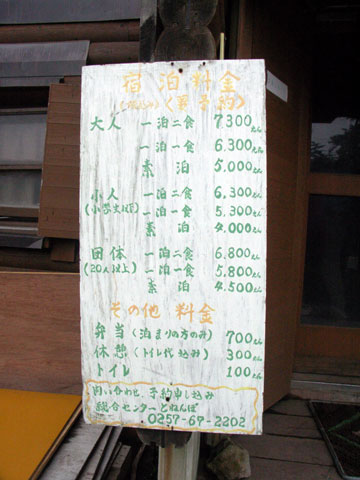 宿泊料金
(要予約)
大人 一泊二食 7.300えん
一泊一食 6.300えん
素泊 5.000えん
小人 一泊二食 6.300えん
(小学生以下) 一泊一食 5.300えん
素泊 4.000えん
団体 一泊二食 6.800えん
(20人以上) 一泊一食 5.800えん
素泊 4.500えん
その他 料金
弁当 (泊まりの方のみ) 700えん
休憩 (トイレ代込み) 300えん
トイレ 100えん
問い合わせ、予約申し込み
総合センターとねんぼ
0257-67-2202